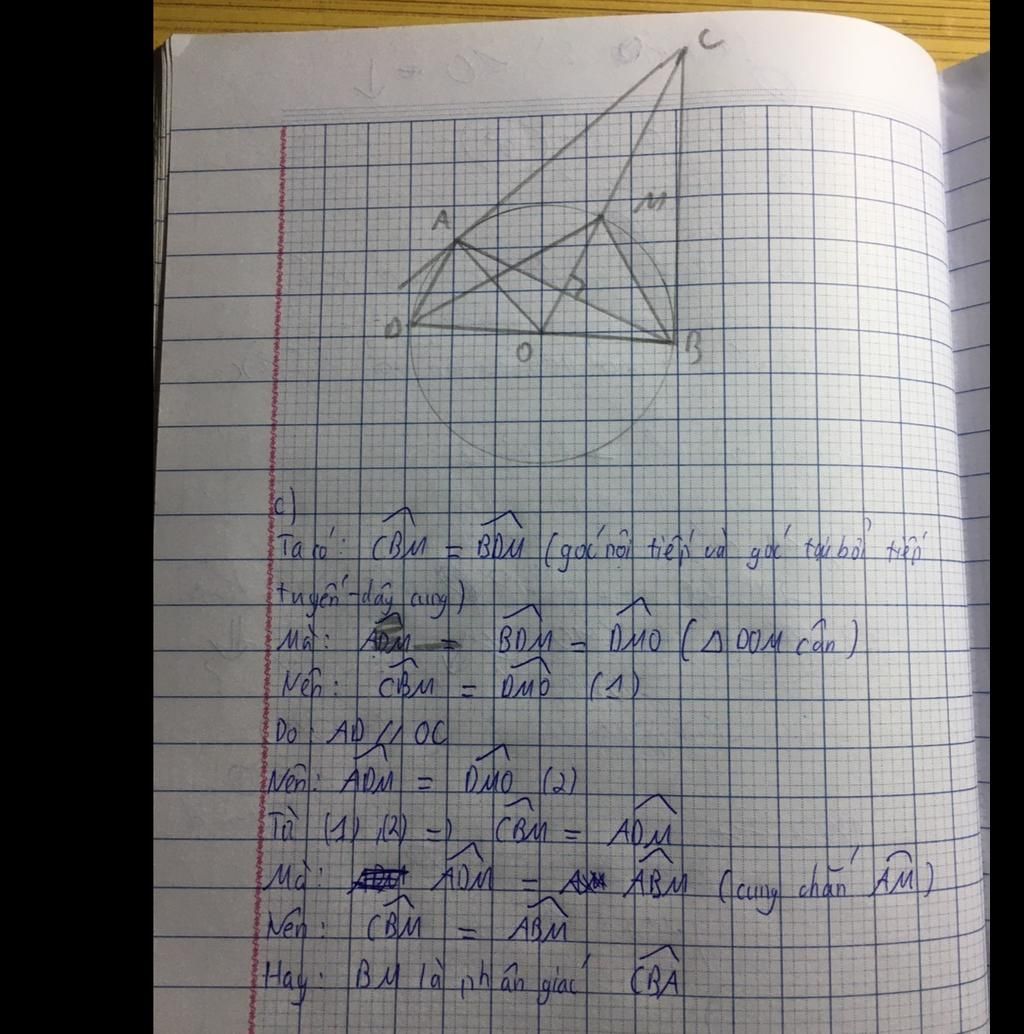 C
A
M
D
O
B
c)
Ta có: CBM = BDM (góc nội tiếp và góc tại bởi tiếp
tuyến-dây cung)
Mà: ADM = BDM = DMO (Δ DOM cân)
Nên: CBM = DMO (1)
Do: AD // OC
Nên: ADM = DMO (2)
Từ (1), (2) =) CBM = ADM
Mà: ADM = ABM (cung chắn AM)
Nên: CBM = ABM
Hay: BM là phân giác CBA